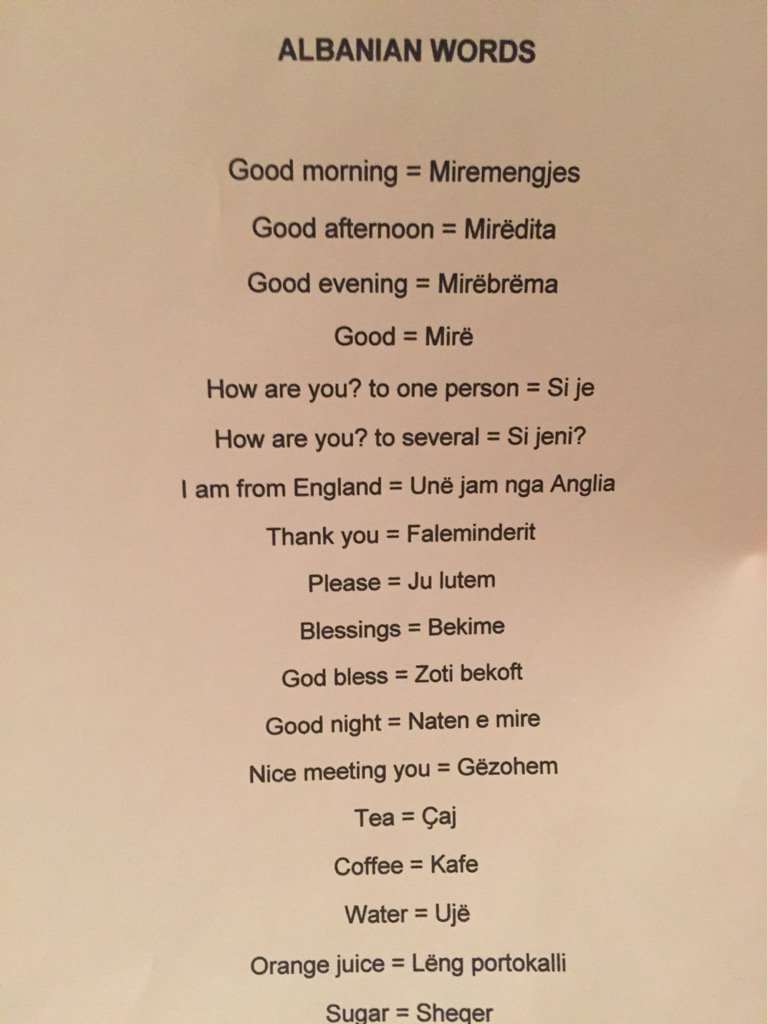 ALBANIAN WORDS
Good morning = Miremengjes
Good afternoon = Mirëdita
Good evening = Mirëbrëma
Good = Mirë
How are you? to one person = Si je
How are you? to several = Si jeni?
I am from England = Unë jam nga Anglia
Thank you = Faleminderit
Please = Ju lutem
Blessings = Bekime
God bless = Zoti bekoft
Good night = Naten e mire
Nice meeting you = Gëzohem
Tea = Çaj
Coffee = Kafe
Water = Ujë
Orange juice = Lëng portokalli
Sugar = Sheqer